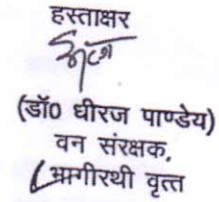 हस्ताक्षर
(डॉ0 धीरज पाण्डेय)
वन संरक्षक,
भागीरथी वृत्त